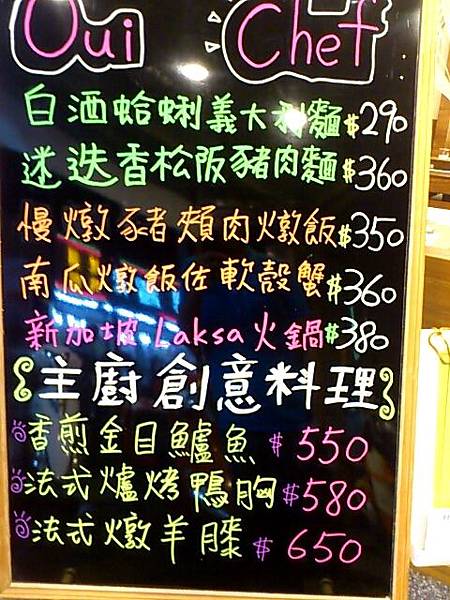 Oui Chef
白酒蛤蜊義大利麵 $290
迷迭香松阪豬肉麵 $360
慢燉豬頰肉燉飯 $350
南瓜燉飯佐軟殼蟹 $360
新加坡 Laksa 火鍋 $380
主廚創意料理
香煎金目鱸魚 $550
法式爐烤鴨胸 $580
法式燉羊膝 $650